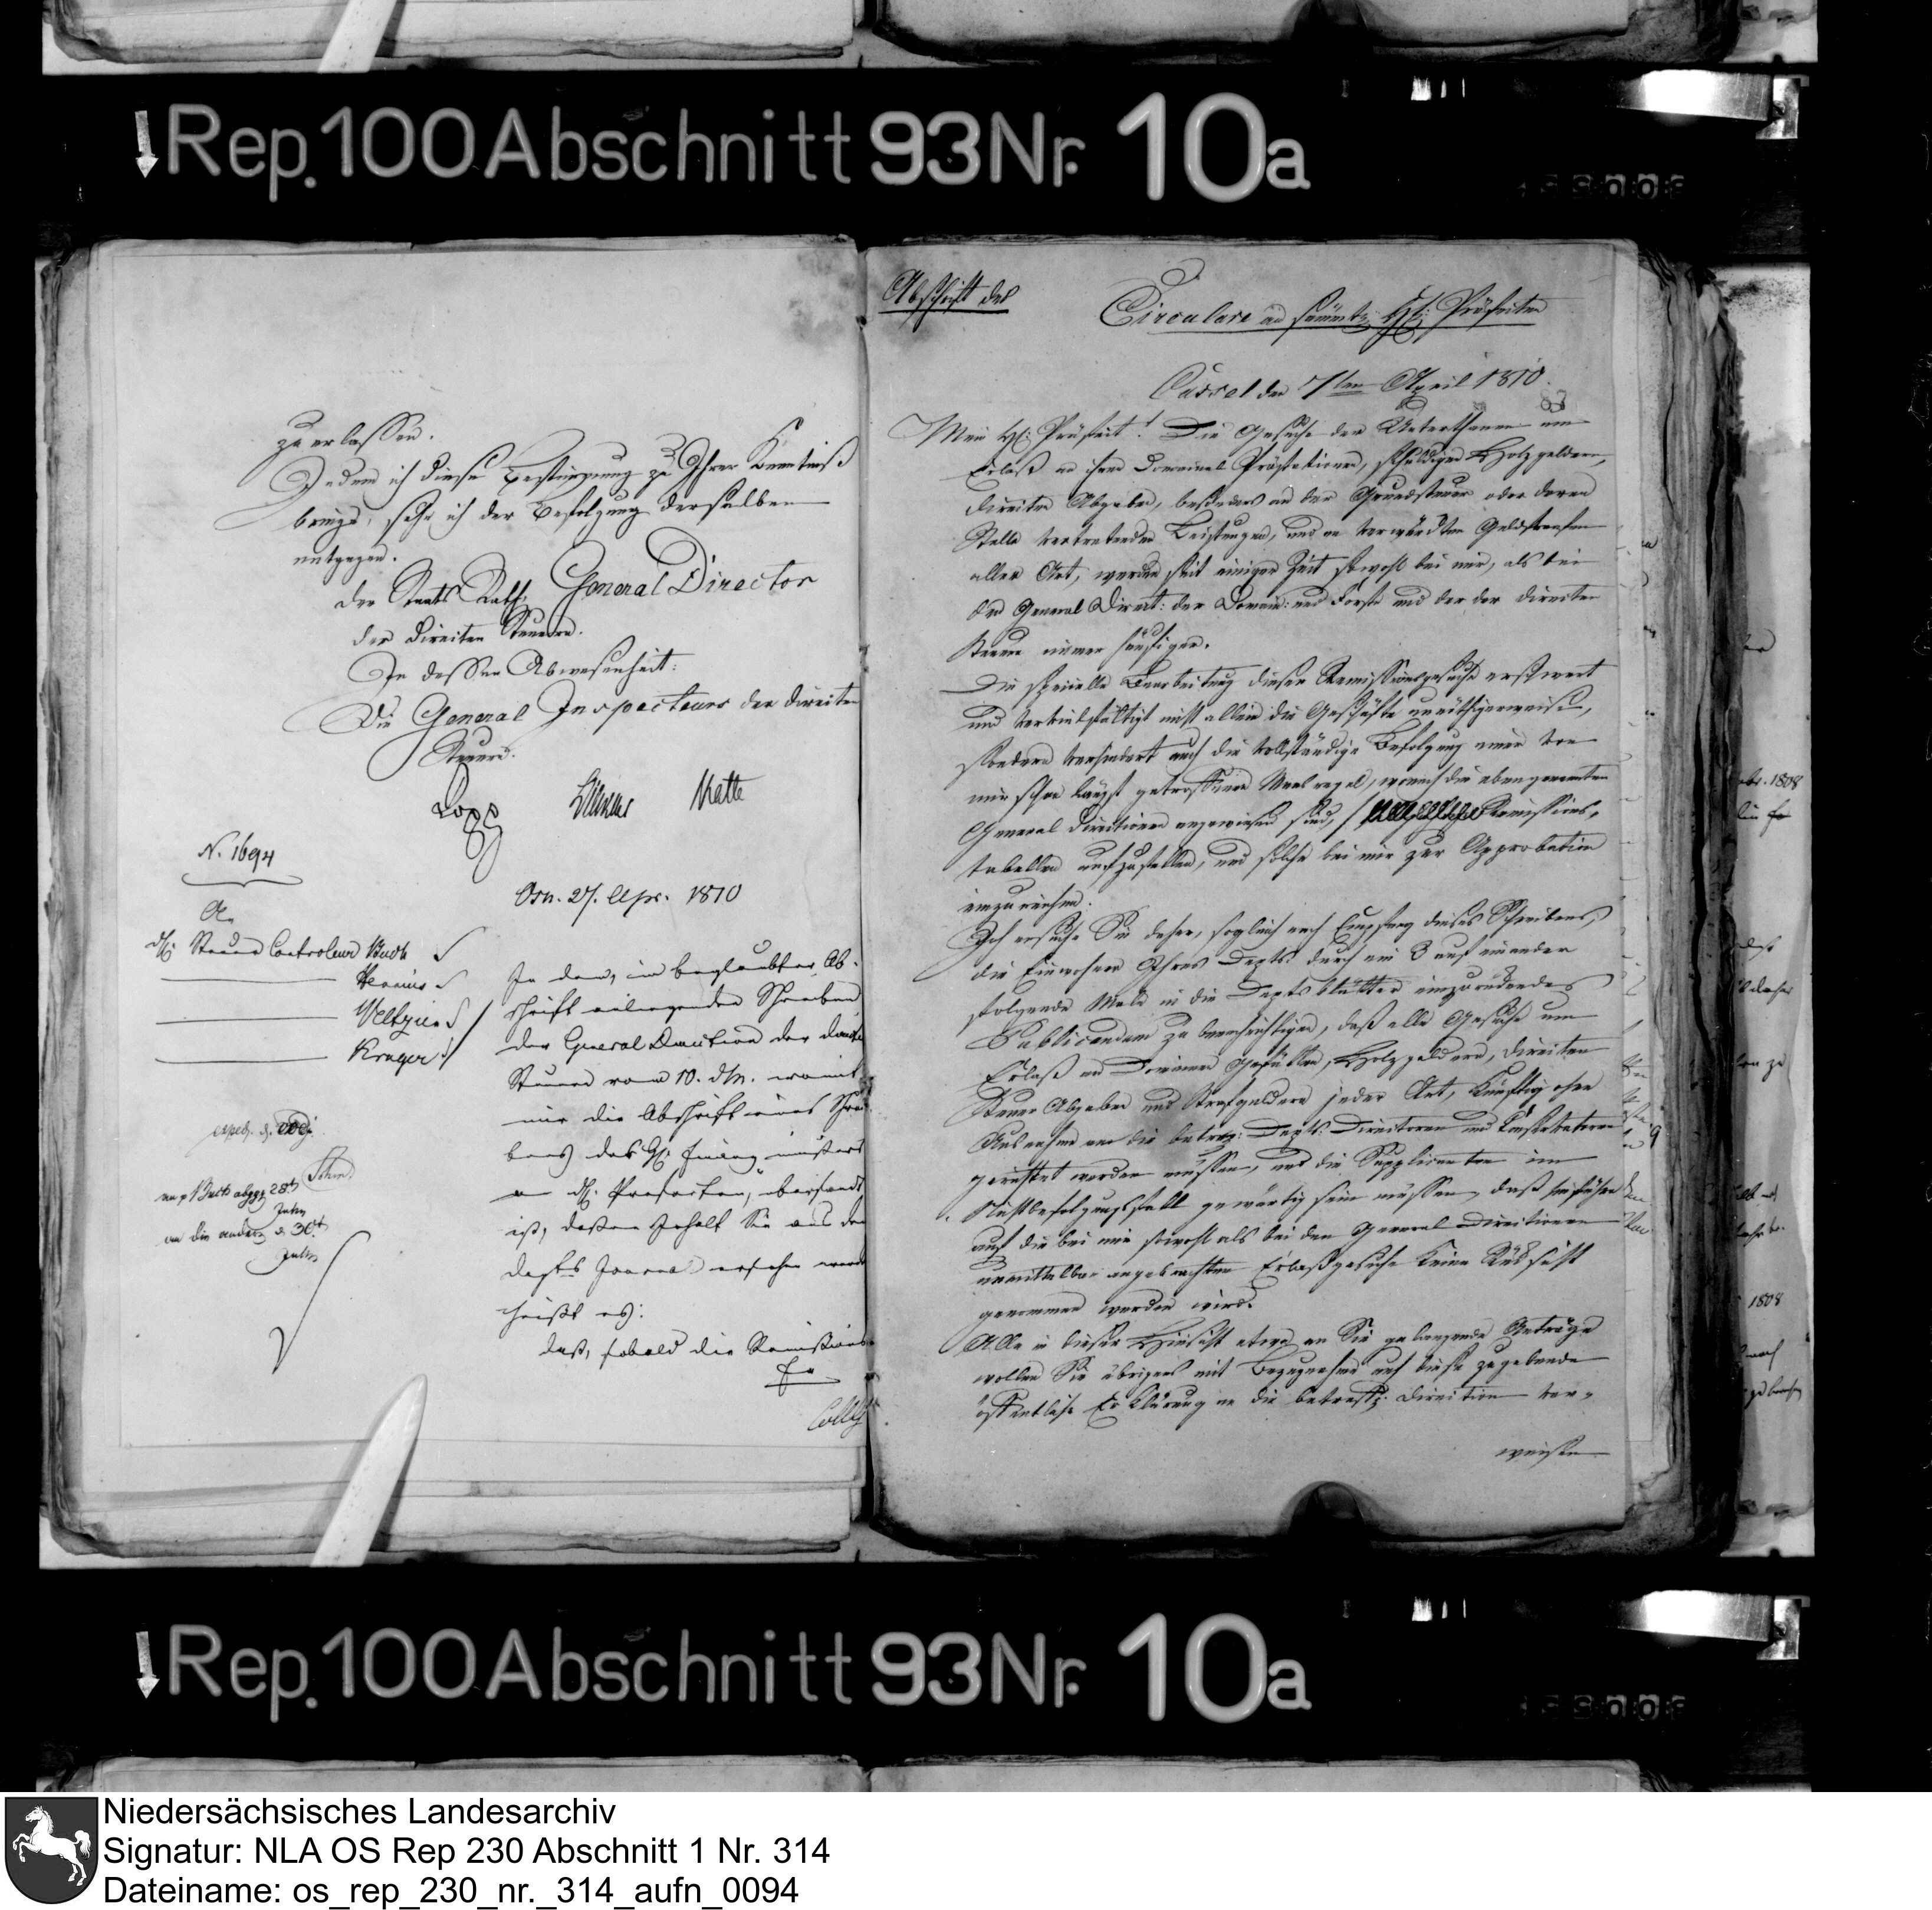 Rep. 100 Abschnitt 93 Nr. 10a
zu erlassen.
Indem ich diese Bestimmung zu Ihrer Kenntniß
bringe, sehe ich der Befolgung derselben
entgegen.
Der Staats Rath, General Director
der Directen Steuern.
In dessen Abwesenheit:
Die General Inspecteurs der directen
Steuern.
N. 1694
Osn. 27. Apr. 1810
Steuer Controleur Buch
Kruger
In dem, in beglaubter Ab-
schrift anliegenden Schreiben
der General Direction der directen
Steuern vom 10. d.M. womit
mir die Abschrift eines Schrei-
bens des H. Finanz-Ministers
an d. H. Präfecten, übersandt
ist, dessen Inhalt Sie aus dem
Depts Journal ersehen werden
heißt es:
daß, sobald die Remissions-
Abschrift des
Circulars an sämmtl. H. Präfecten
Cassel den 7ten April 1810.
83
Mein H. Präfect! Die Gesuche der Unterthanen um
Erlaß an ihren Domainal Prästationen, schuldigen Holzgeldern,
directen Abgaben, besonders an der Grundsteuer oder deren
Stelle vertretenden Leistungen, und an verwürckten Geldstrafen
aller Art, werden seit einiger Zeit sowohl bei mir, als bei
den General Direct: der Domain: und Forste und der der directen
Steuern immer häufiger.
Die specielle Bearbeitung dieser Remissionsgesuche erschwert
und vervielfältigt nicht allein die Geschäfte unnöthigerweise,
sondern verhindert auch die vollständige Befolgung einer von
mir schon längst getroffenen Maasregel, wonach die obengenannten
General Directionen angewiesen sind, Remissions-
tabellen aufzustellen, und solche bei mir zur Approbation
einzureichen.
Ich ersuche Sie daher, sogleich nach Empfang dieses Schreibens,
die Einwohner Ihres Depts. durch ein 3 auf einander
folgende Male in die Deptsblätter einzurückendes
Publicandum zu benachrichtigen, daß alle Gesuche um
Erlaß an Domainen Gefällen, Holzgeldern, directen
Steuer Abgaben und Strafgeldern jeder Art, künftig ohne
Ausnahme an die betreff: Depts. Directoren und Conservatoren
gerichtet werden müssen, und die Supplicanten im
Nichtbefolgungsfall gewärtig sein müssen, daß
auf die bei mir sowohl als bei den General Directionen
unmittelbar angebrachten Erlaßgesuche keine Rücksicht
genommen werden wird.
Alle in dieser Hinsicht etwa an Sie gelangende Anträge
wollen Sie übrigens mit Bezugnahme auf diese zugebende
öffentliche Erklärung an die betreff: Direction ver-
weisen
Rep. 100 Abschnitt 93 Nr. 10a
Niedersächsisches Landesarchiv
Signatur: NLA OS Rep 230 Abschnitt 1 Nr. 314
Dateiname: os_rep_230_nr._314_aufn_0094